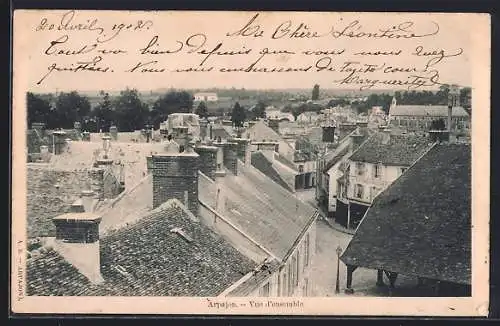 20 Avril 1902
Ma Chère Léontine
Tout va bien depuis que vous nous avez
quittés. Nous vous embrassons de tout cœur
Marguerite
Arpajon. – Vue d'ensemble
A. B. – ARPAJON